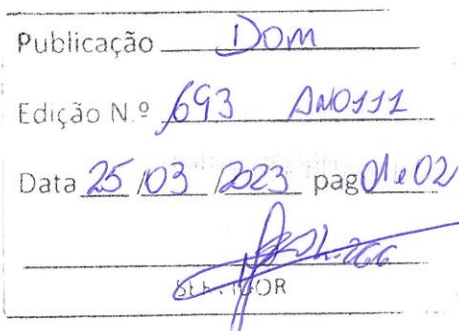 Publicação DOM
Edição N.º 693 ANO111
Data 25/03/2023 pag 01e02
SERVIDOR